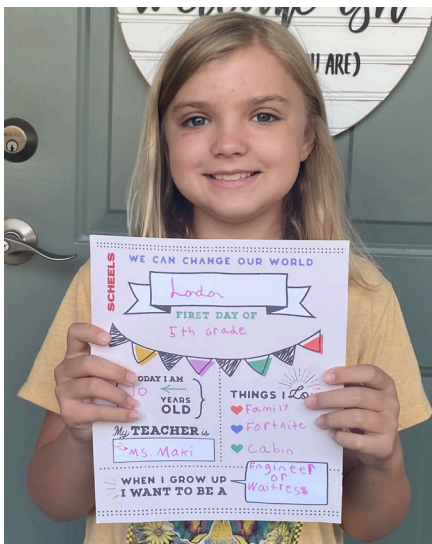 U ARE)
SCHEELS
WE CAN CHANGE OUR WORLD
London
FIRST DAY OF
5th Grade
ODAY I AM
10
YEARS
OLD
THINGS I Lo
Family
Fortnite
Cabin
My TEACHER is
Ms. Maki
WHEN I GROW UP
I WANT TO BE A
Engineer
or
Waitress